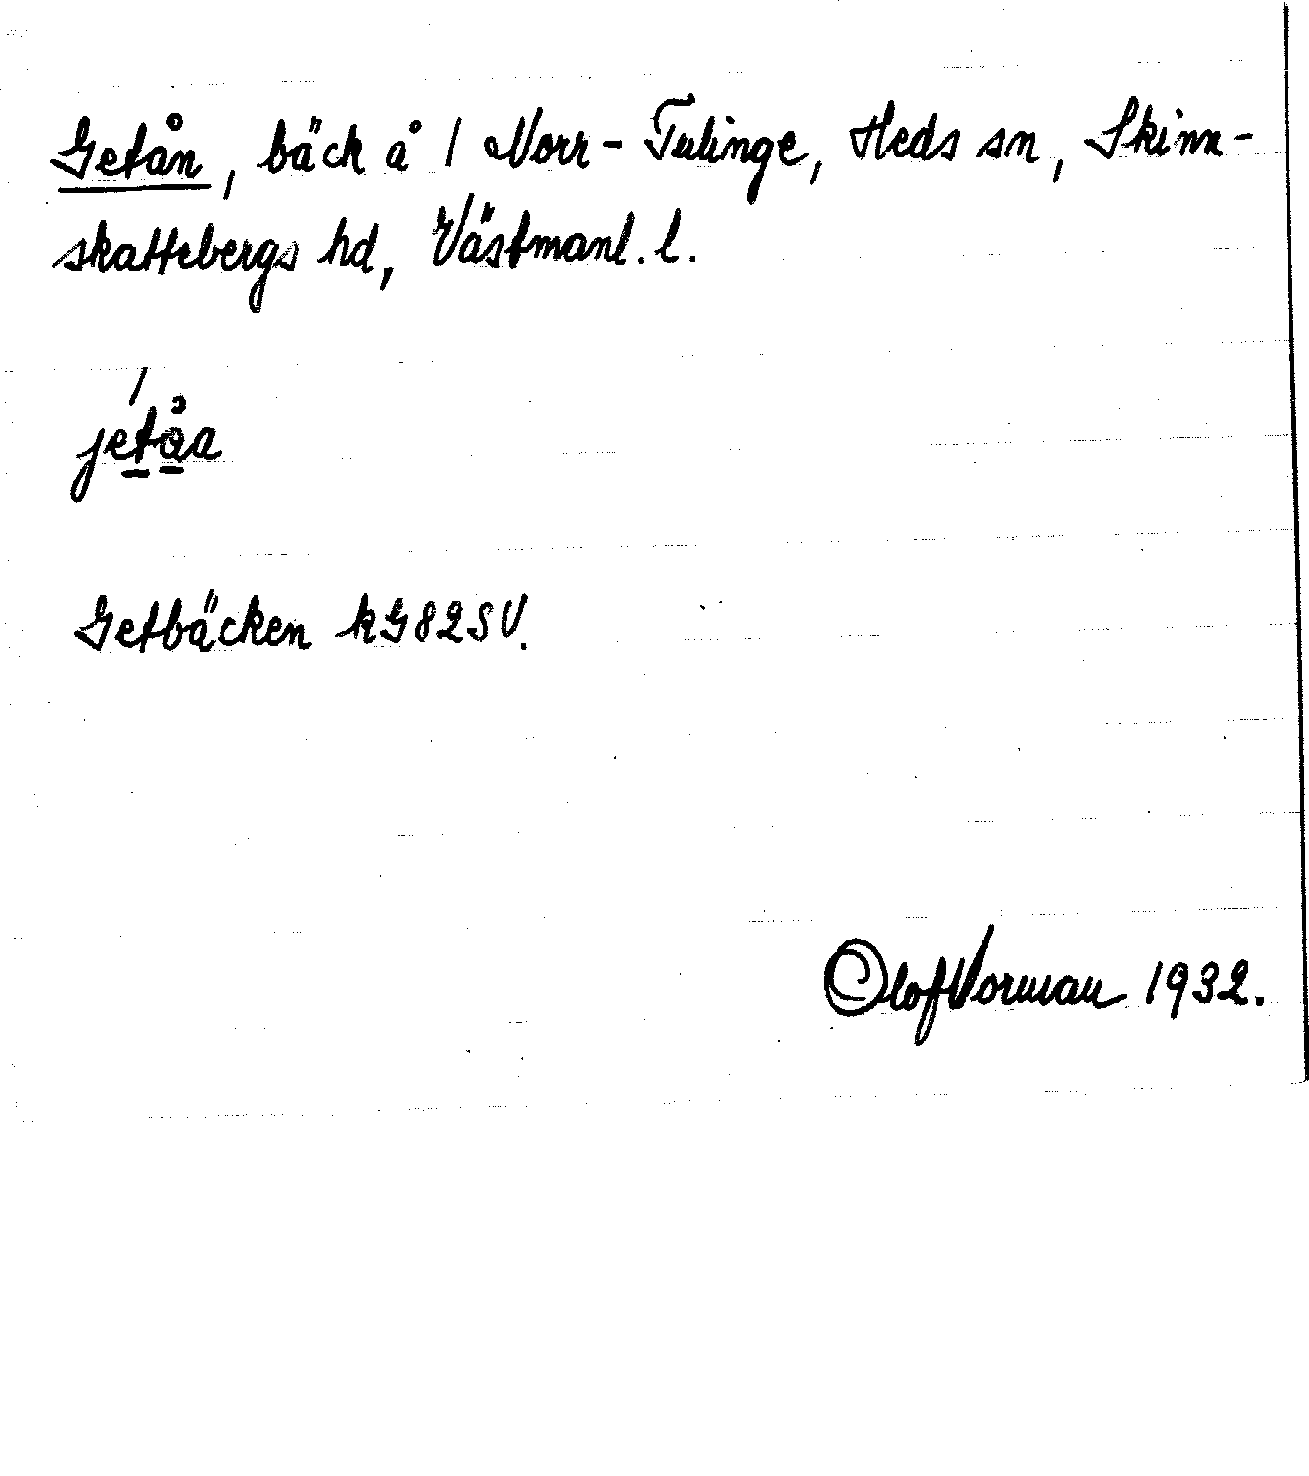 Getån, bäck å / Norr-Tulinge, Heds sn, Skinn-
skattebergs hd, Västmanl. l.
jetåa
Getbäcken kG 82 SV.
Olof Vorman 1932.